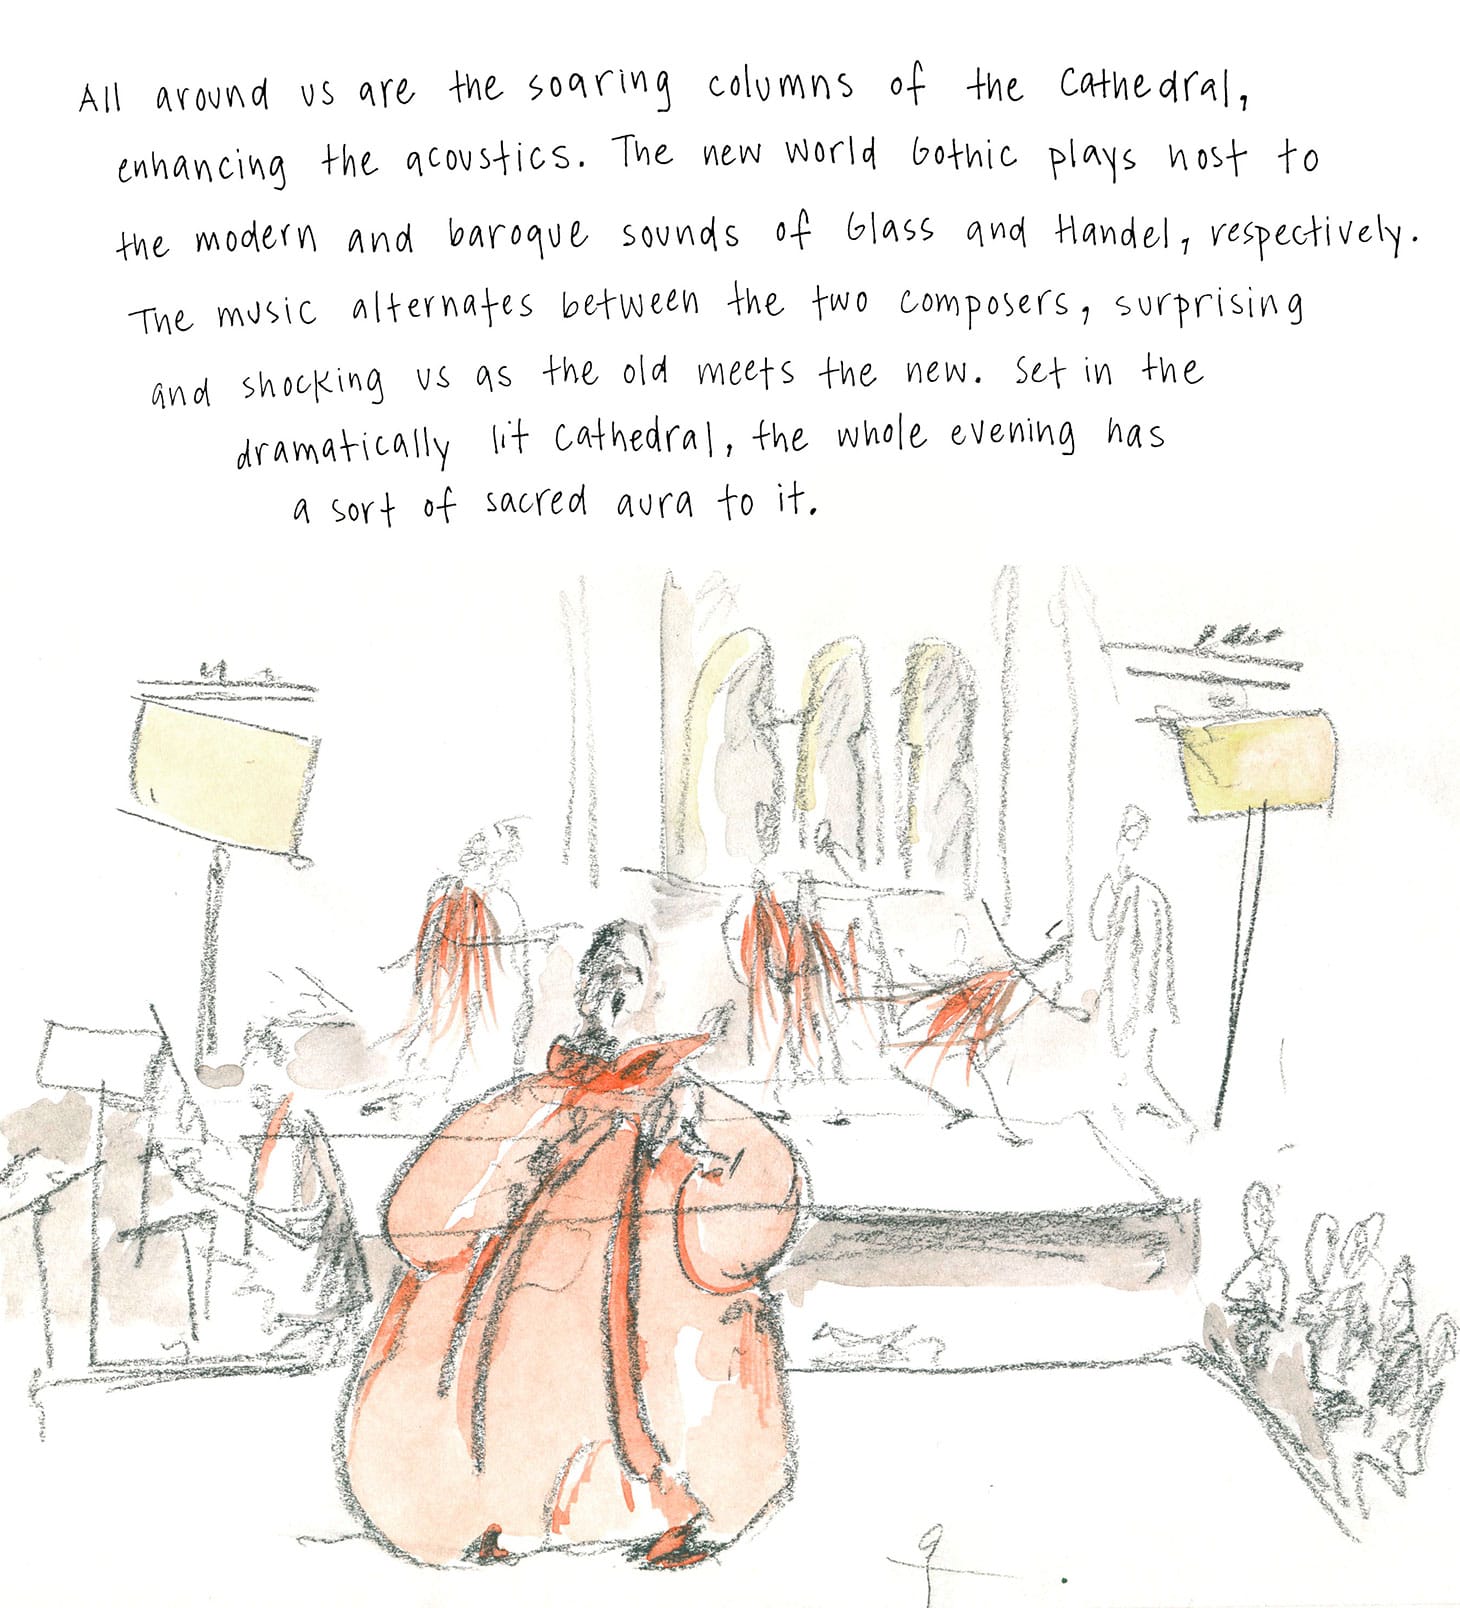 All around us are the soaring columns of the Cathedral,
enhancing the acoustics. The new world Gothic plays host to
the modern and baroque sounds of Glass and Handel, respectively.
The music alternates between the two composers, surprising
and shocking us as the old meets the new. Set in the
dramatically lit Cathedral, the whole evening has
a sort of sacred aura to it.